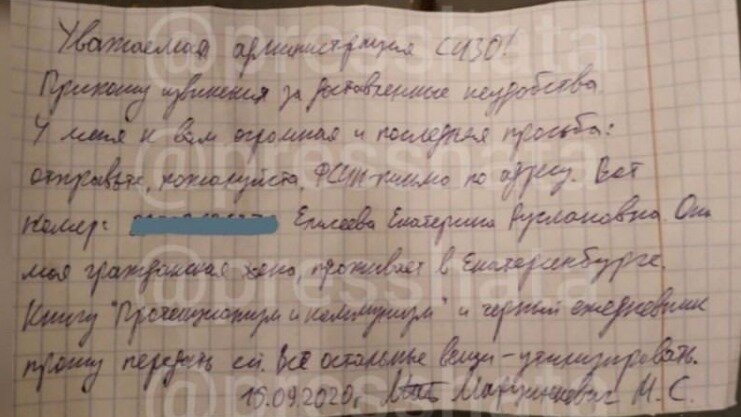 Уважаемая администрация СИЗО!
Приношу извинения за доставленные неудобства.
У меня к вам огромная и последняя просьба:
отправьте, пожалуйста, ФСИН-письмо по адресу. Вот
номер: Елисеева Екатерина Руслановна. Она
моя гражданская жена, проживает в Екатеринбурге.
Книгу "Протекционизм и коммунизм" и чёрный ежедневник
прошу передать ей. Все остальные вещи - утилизировать.
15.09.2020г. Марцинкевич М.С.
@presshata
@presshata
@presshata
@presshata